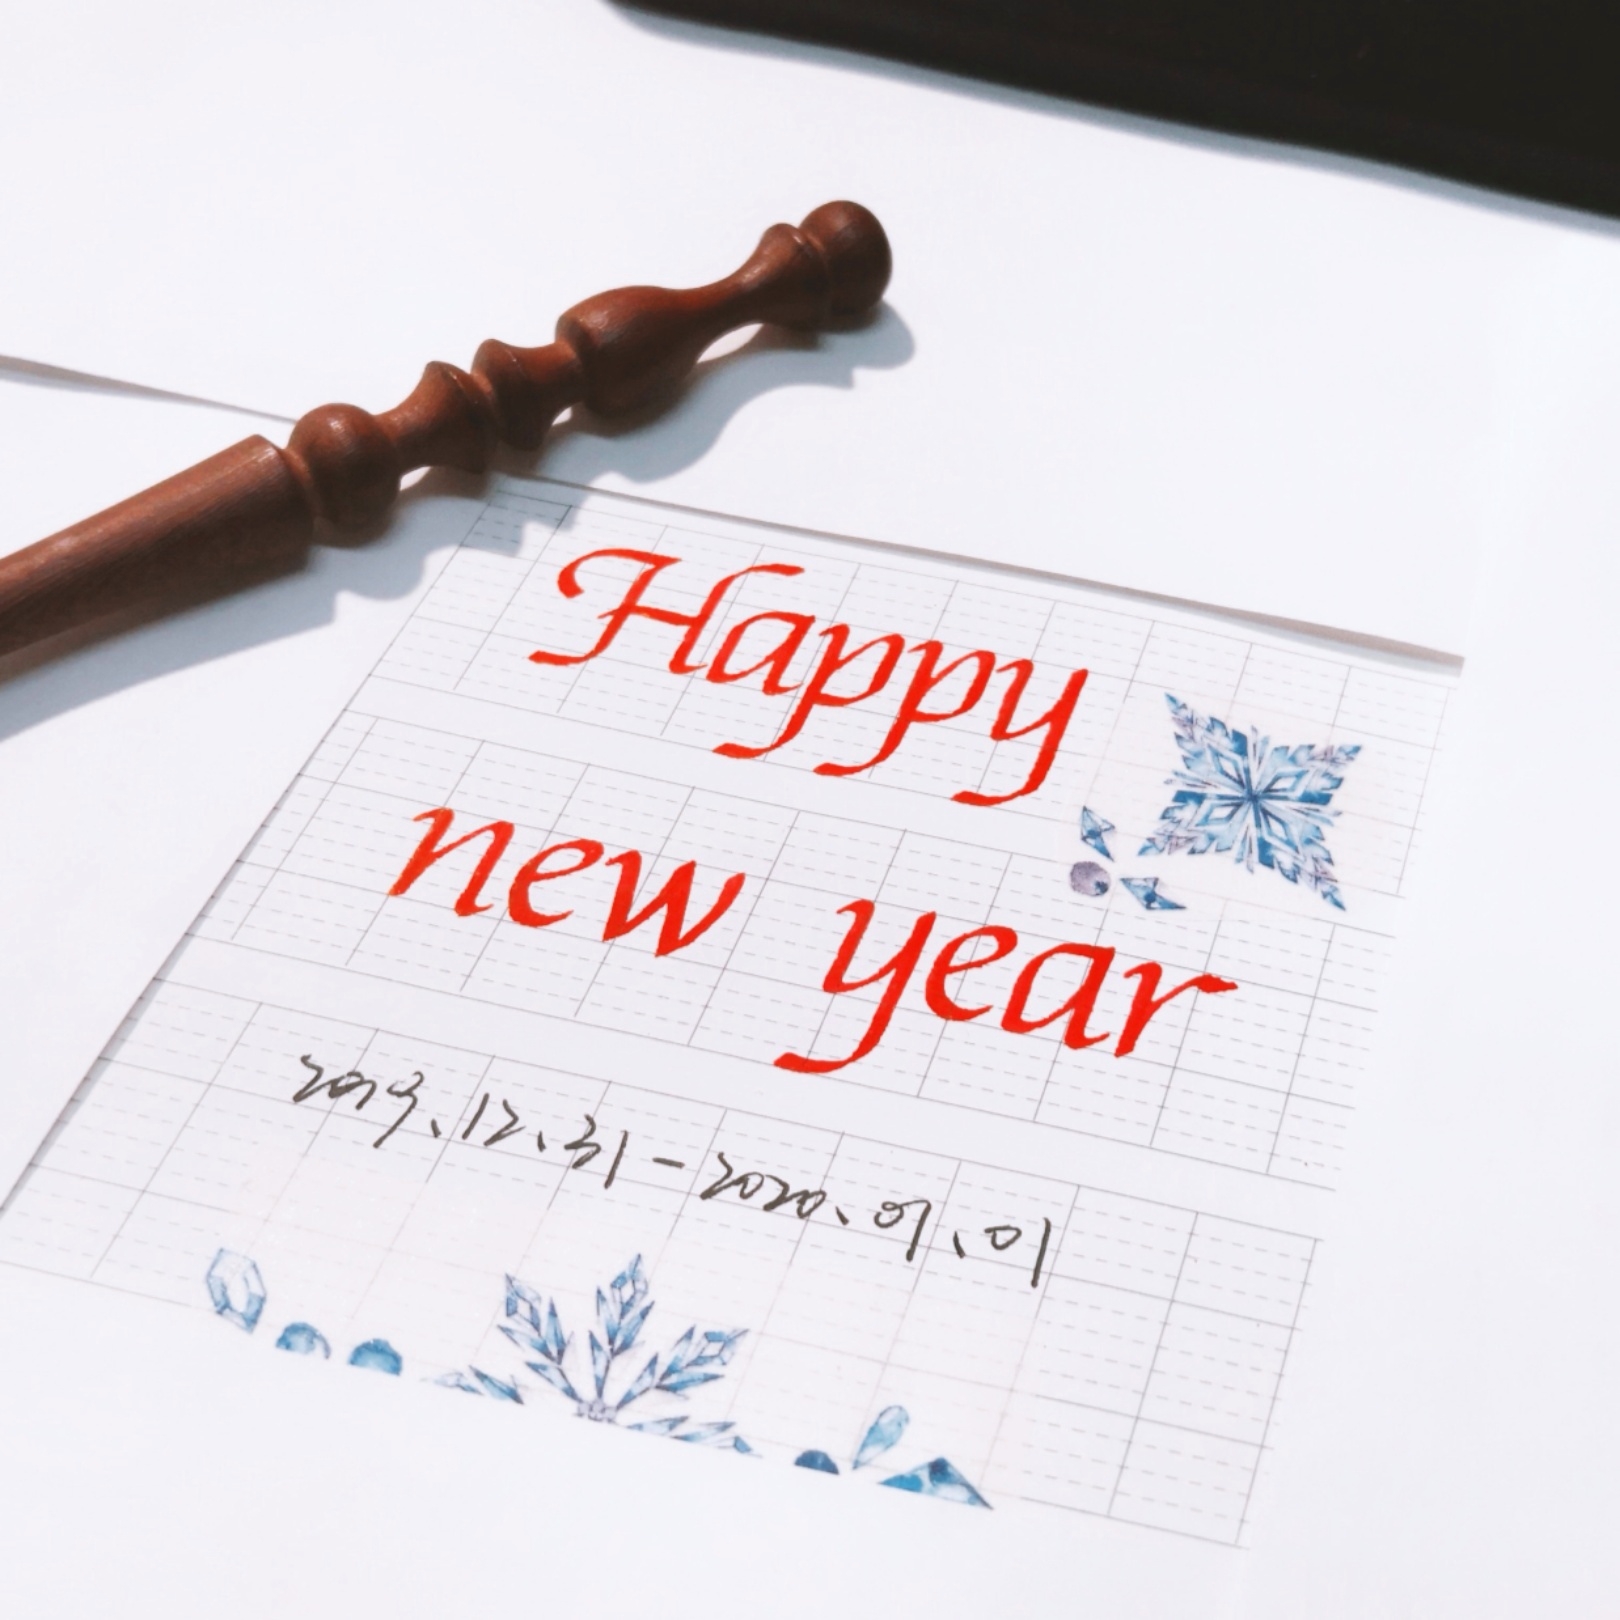 Happy
new year
2019.12.31-2020.01.01